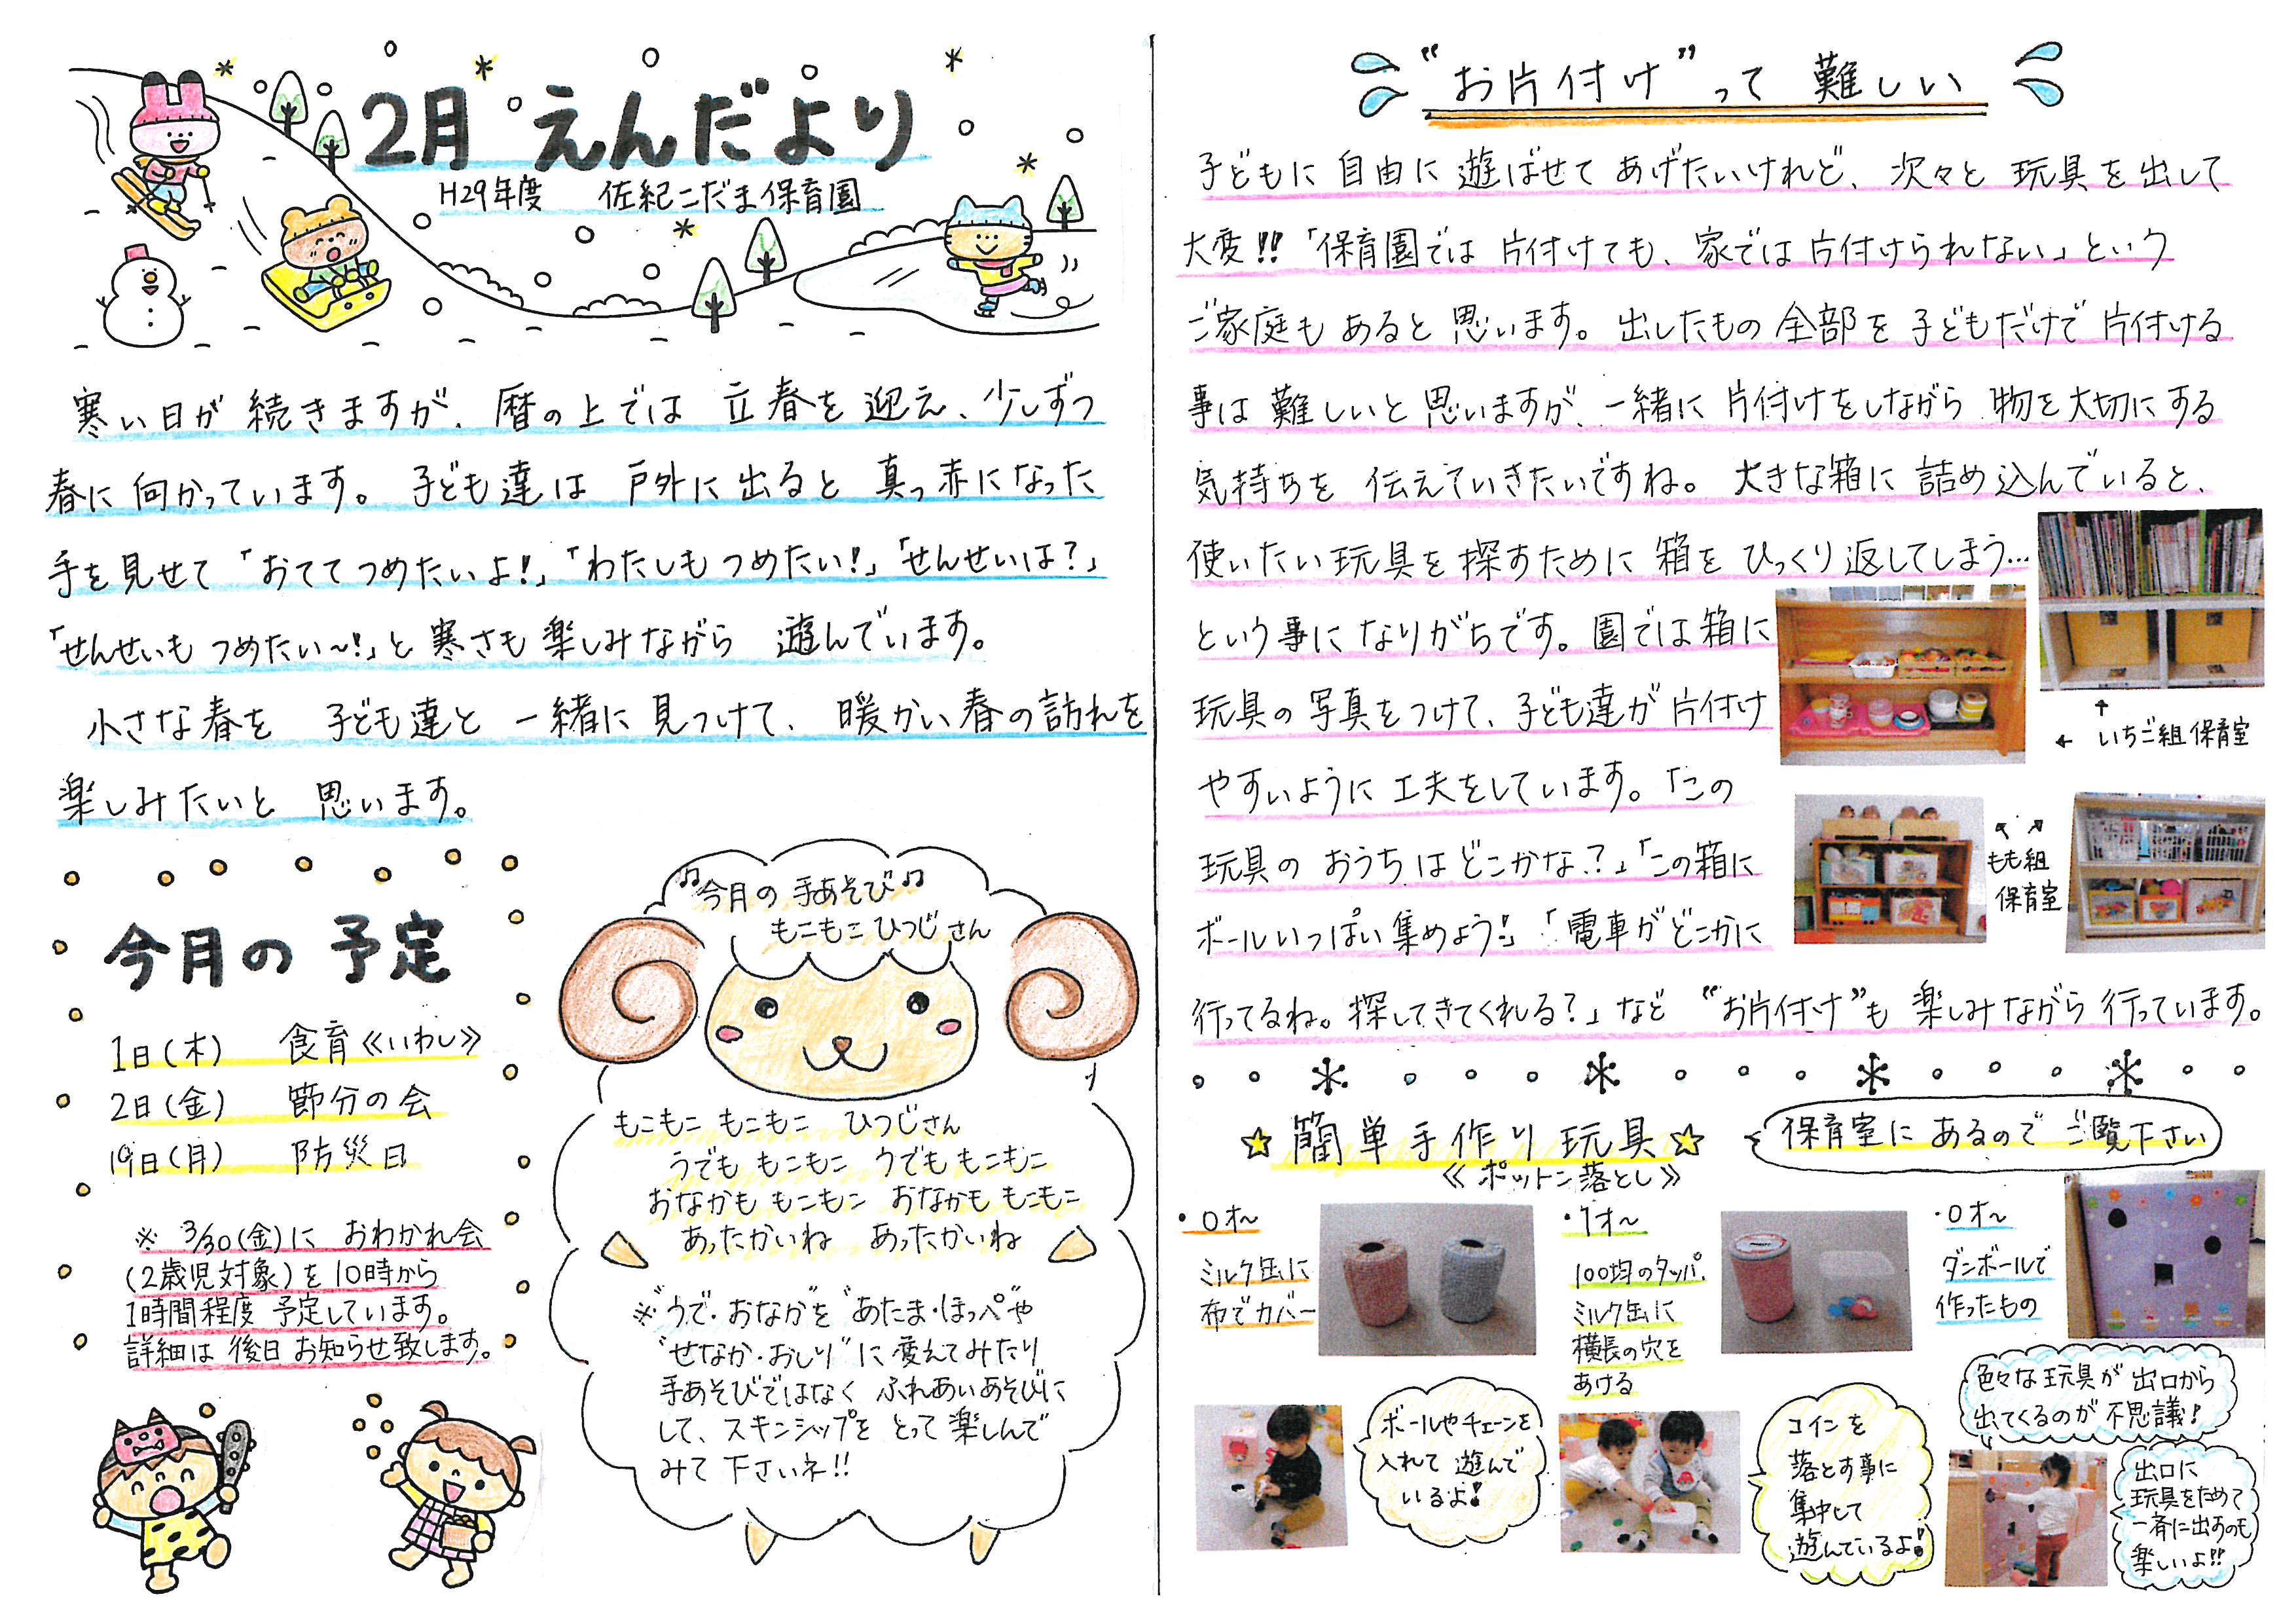 2月 えんだより
H29年度 佐紀こだま保育園
寒い日が続きますが、暦の上では 立春を 迎え、少しずつ
春に向かっています。子ども達は 戸外に出ると 真っ赤になった
手を見せて「おてて つめたいよ!」「わたしも つめたい!」「せんせいは?」
「せんせいも つめたい〜!」と 寒さも 楽しみながら 遊んでいます。
小さな春を 子ども達と 一緒に 見つけて、暖かい春の訪れを
楽しみたいと 思います。
今月の 予定
1日(木) 食育《いわし》
2日(金) 節分の会
19日(月) 防災日
※ 3/30(金)に おわかれ会
(2歳児対象)を 10時から
1時間程度 予定しています。
詳細は 後日 お知らせ致します。
♫今月の 手あそび♫
もこもこ ひつじさん
もこもこ もこもこ ひつじさん
うでも もこもこ うでも もこもこ
おなかも もこもこ おなかも もこもこ
あったかいね あったかいね
※“うで・おなか”を “あたま・ほっぺ”や
“せなか・おしり”に 変えてみたり
手あそびではなく ふれあいあそびに
して、スキンシップを とって 楽しんで
みて 下さいネ!!
“お片付け”って 難しい
子どもに 自由に 遊ばせて あげたいけれど、次々と 玩具を出して
大変!!「保育園では 片付けても、家では 片付けられない」という
ご家庭も あると 思います。出したもの 全部を 子どもだけで 片付ける
事は 難しいと 思いますが、一緒に 片付けをしながら 物を大切にする
気持ちを 伝えていきたいですね。大きな箱に 詰め込んでいると、
使いたい玩具を 探すために 箱を ひっくり返してしまう…
という事に なりがちです。園では箱に
玩具の 写真をつけて、子ども達が 片付け
やすいように 工夫をしています。「この
玩具の おうちは どこかな?」「この箱に
ボールいっぱい 集めよう!」「電車がどこかに
行ってるね。探してきてくれる?」など “お片付け”も 楽しみながら 行っています。
↑
← いちご組 保育室
↖ ↗
もも組
保育室
☆ 簡単 手作り 玩具 ☆
《 ポットン落とし 》
保育室に あるので ご覧下さい
・0才〜
ミルク缶に
布でカバー
・1才〜
100均のタッパ、
ミルク缶に
横長の穴を
あける
・0才〜
ダンボールで
作ったもの
ボールやチェーンを
入れて 遊んで
いるよ!
コインを
落とす事に
集中して
遊んでいるよ!
色々な玩具が 出口から
出てくるのが 不思議!
出口に
玩具をためて
一斉に出すのも
楽しいよ!!